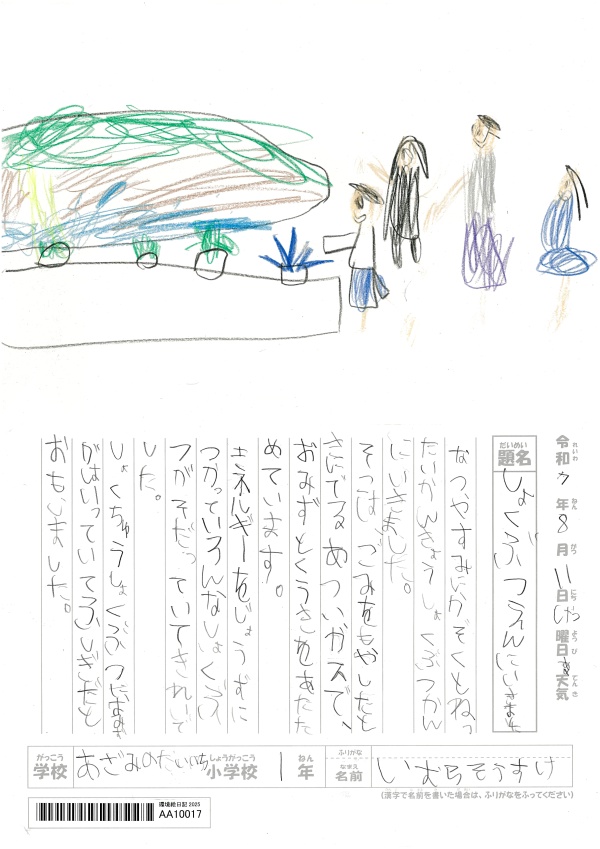 令和 7 年 8 月 11 日 げつ 曜日 天気
れいわ ねん がつ にち ようび てんき
だいめい
題名 しょくぶつえんにいきました
なつやすみにかぞくとねっ
たいかんきょうしょくぶつかん
にいきました。
そこは、ごみをもやしたと
きにでるあついガスで、
おみずとくうきをあたた
めています。
エネルギーをじょうずに
つかっていろんなしょくぶ
つがそだっていてきれいで
した。
しょくちゅうしょくぶつに
がはいっていてふしぎだと
おもいました。
がっこう
学校 あざみのだいいち
しょうがっこう
小学校 1 年
ねん
ふりがな
なまえ
名前 いむらそうすけ
(漢字で名前を書いた場合は、ふりがなをふってください)
環境絵日記 2025
AA10017